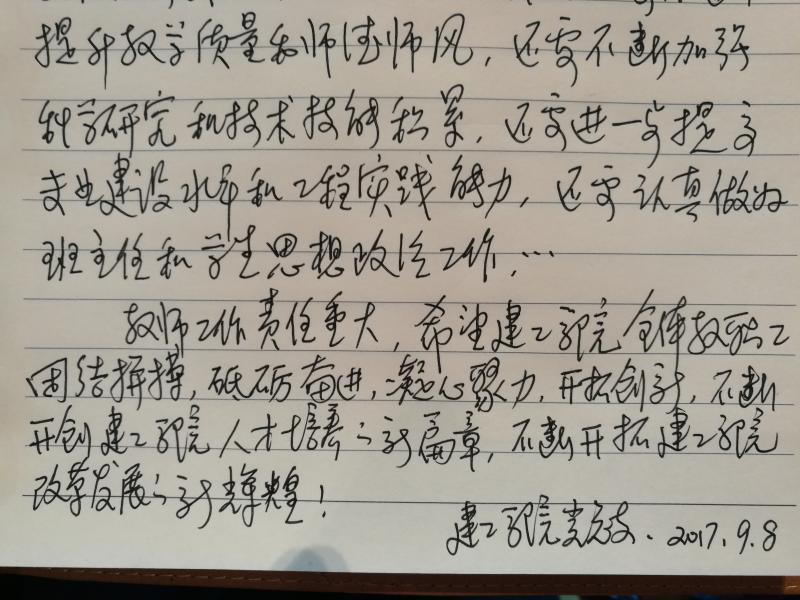 提升教学质量和师德师风，还需不断加强
科学研究和技术技能积累，还需进一步提高
专业建设水平和工程实践能力，还需认真做好
班主任和学生思想政治工作，…
教师工作责任重大，希望建工院全体教职工
团结拼搏，砥砺奋进，凝心聚力，开拓创新，不断
开创建工院人才培养之新篇章，不断开拓建工院
改革发展之新辉煌！
建工院党总支．2017.9.8